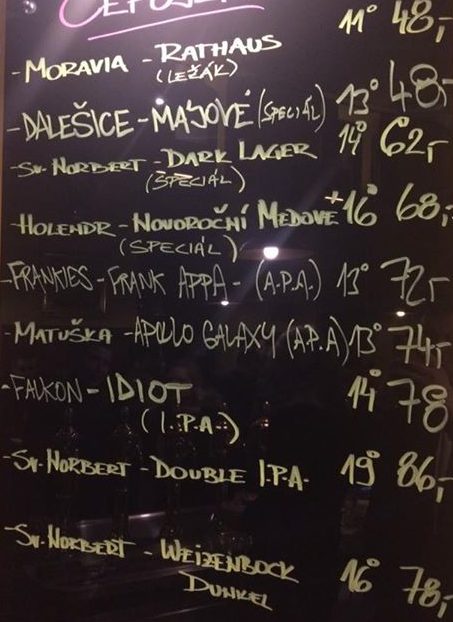 - MORAVIA - RATHAUS 11° 48,-
(LEŽÁK)
- DALEŠICE - MÁJOVÉ (SPECIÁL) 13° 48,-
- SV. NORBERT - DARK LAGER 14° 62,-
(SPECIÁL)
- HOLENDR - NOVOROČNÍ MEDOVÉ 16° 68,-
(SPECIÁL)
- FRANKIES - FRANK APPA - (A.P.A.) 13° 72,-
- MATUŠKA - APOLLO GALAXY (A.P.A) 13° 74,-
- FALKON - IDIOT 14° 78
(I.P.A.)
- SV. NORBERT - DOUBLE I.P.A. 19° 86,-
- SV. NORBERT - WEIZENBOCK
DUNKEL 16° 78,-